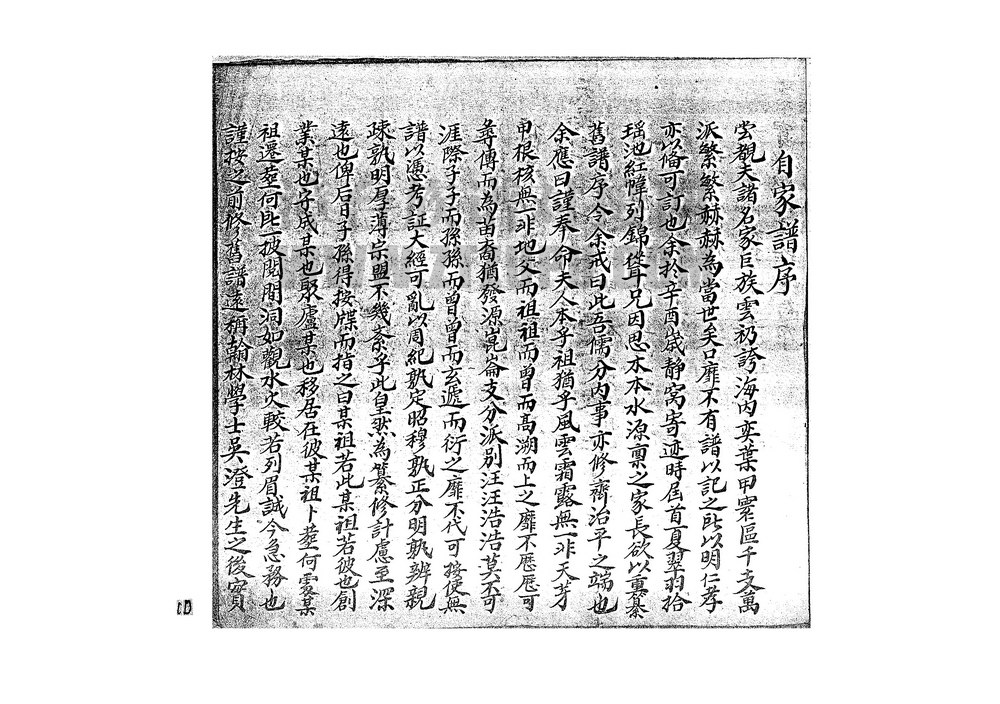 自家譜序
嘗觀夫諸名家巨族雲礽誇海内奕葉甲寰區千支萬
派繁繁赫赫為當世矣口靡不有譜以記之此以明仁孝
亦以俻可訂也余扵辛酉歲静窝寄迹時居首夏翠羽拾
瑶池紅幃列錦聳兄因思木本水源禀之家長欲以重纂
舊譜序令余戒曰此吾儒分内事亦修齊治平之端也
余應曰謹奉命夫人本乎祖猶乎風雲霜露無一非天芽
甲根核無一非地父而祖祖而曾而高溯而上之靡不歷歷可
尋傳而為苗裔猶發源崑崙支分派别汪汪浩浩莫不可
涯際子子而孫孫而曾曾而玄遞而衍之靡不代可按使無
譜以憑考証大經可亂以周紀孰定昭穆孰正分明孰辨親
疎孰明厚薄宗盟不幾紊乎此皇然為纂修計慮至深
遠也俾后日子孫得按牒而指之曰某祖若此某祖若彼也創
業某也守成某也聚廬某也移居在彼某祖卜塟何處某
祖遷塟何此一披閲間洞如觀水火較若列眉誠今急務也
謹按之前修舊譜遠稱翰林學士吳澄先生之後實
10